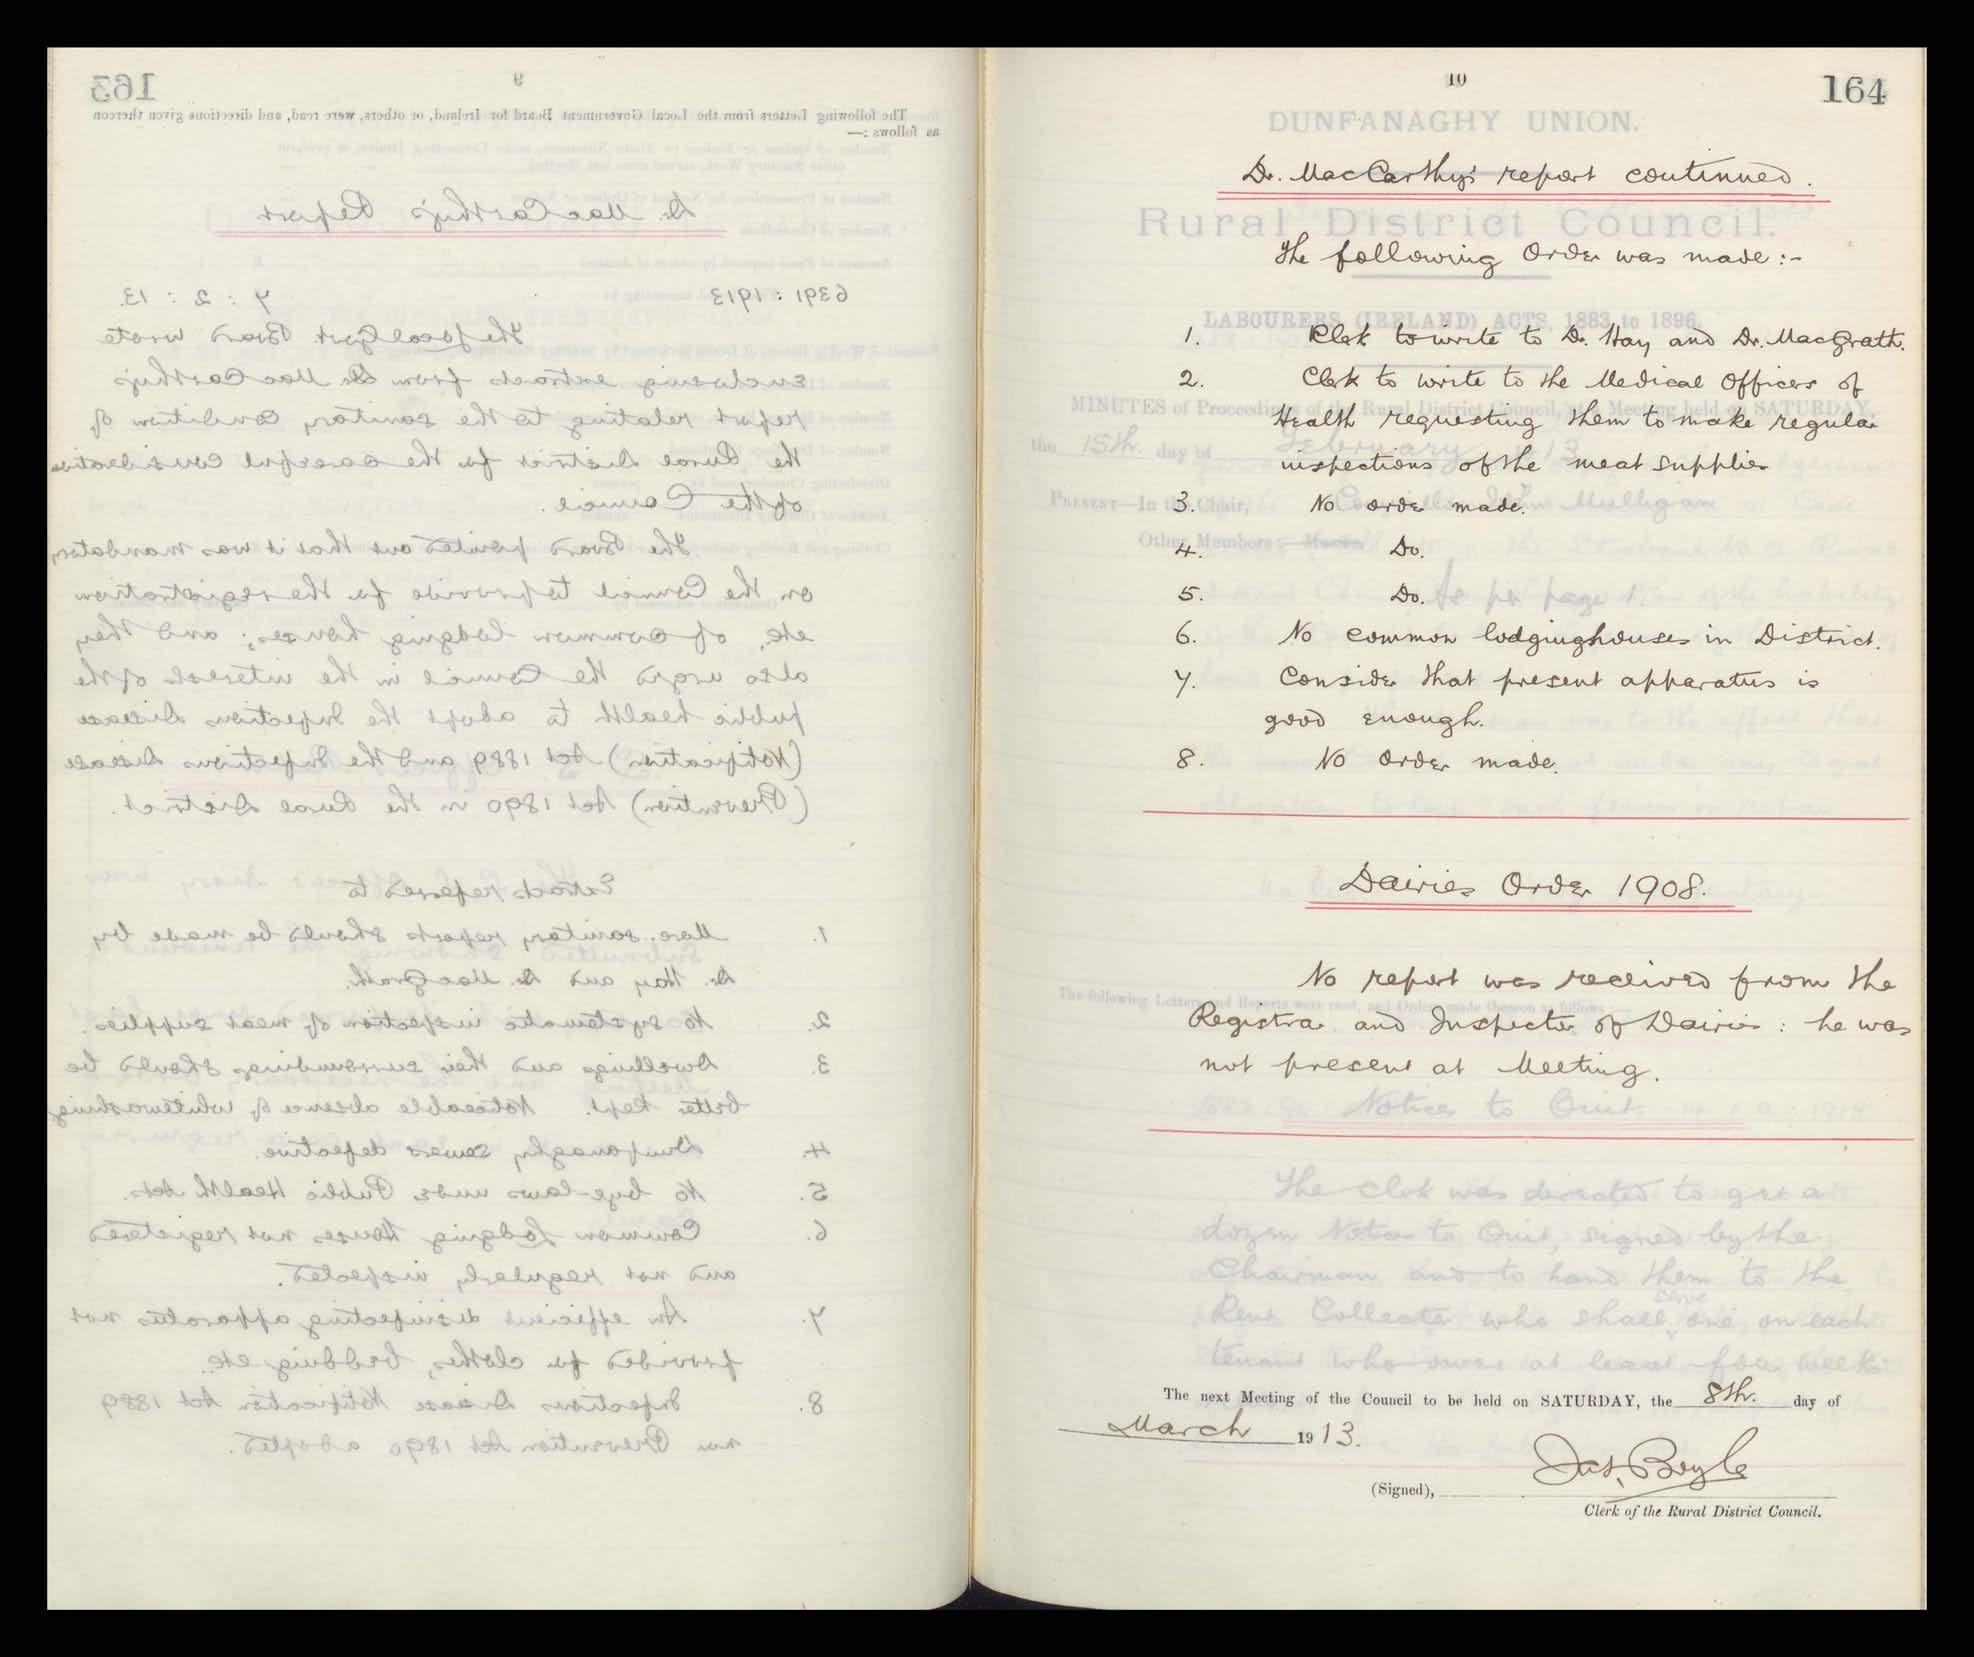 163
9
The following Letters from the Local Government Board for Ireland, or others, were read, and directions given thereon
as follows :—
Dr. MacCarthy's Report
6391 : 1913
7 : 2 : 13.
The Local Govt Board wrote
enclosing extracts from Dr MacCarthy's
report relating to the sanitary condition of
the Rural District for the careful consideration
of the Council.
The Board pointed out that it was mandatory
on the Council to provide for the registration
etc, of common lodging houses; and they
also urged the Council in the interests of the
public health to adopt the Infectious Disease
(Notification) Act 1889 and the Infectious Disease
(Prevention) Act 1890 in the Rural District.
Extracts referred to
1. More sanitary reports should be made by
Dr. Hay and Dr. MacGrath.
2. No systematic inspection of meat supplies.
3. Dwellings and their surroundings should be
better kept. Noticeable absence of whitewashing
4. Dunfanaghy sewers defective.
5. No bye-laws under Public Health Acts.
6. Common Lodging Houses not registered
and not regularly inspected.
7. An efficient disinfecting apparatus not
provided for clothes, bedding, etc.
8. Infectious Disease Notification Act 1889
nor Prevention Act 1890 adopted.
10
164
DUNFANAGHY UNION.
Dr. MacCarthy's report continued.
Rural District Council.
The following Order was made :-
LABOURERS (IRELAND) ACTS, 1883 to 1896.
1. Clerk to write to Dr. Hay and Dr. MacGrath.
2. Clerk to write to the Medical Officers of
MINUTES of Proceedings of the Rural District Council, at a Meeting held on SATURDAY,
Health requesting them to make regular
the 15th. day of February 13
inspections of the meat supplies
PRESENT—In the Chair, Councillor John Mulligan
3. No order made.
Other Members :
4. Do.
5. Do.
As per page 1.
6. No common lodginghouses in District.
7. Consider that present apparatus is
good enough.
8. No Order made.
Dairies Order 1908.
No report was received from the
The following Letters and Reports were read, and Orders made thereon as follows :—
Registrar and Inspector of Dairies : he was
not present at Meeting.
Notices to Quit.
The Clerk was directed to get a
dozen Notices to Quit, signed by the
Chairman and to hand them to the
Rent Collector who shall serve one on each
tenant who owes at least four weeks
The next Meeting of the Council to be held on SATURDAY, the 8th. day of
March 1913.
Jas. Boyle
(Signed),
Clerk of the Rural District Council.